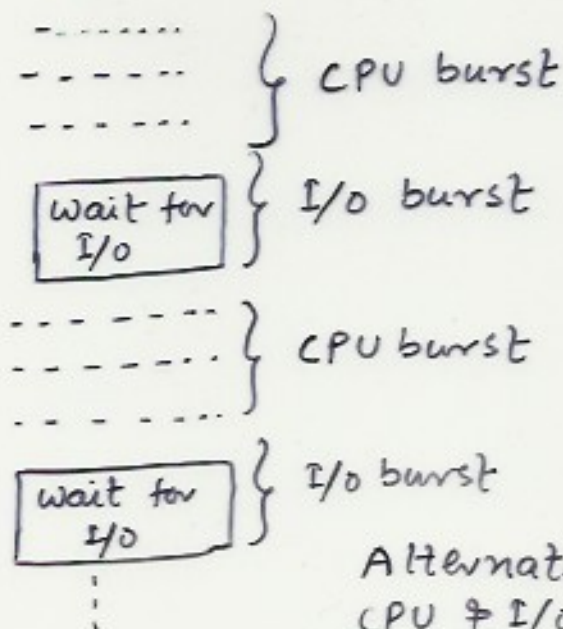 CPU burst
wait for
I/O
I/O burst
CPU burst
wait for
I/O
I/O burst
Alternat
CPU & I/O